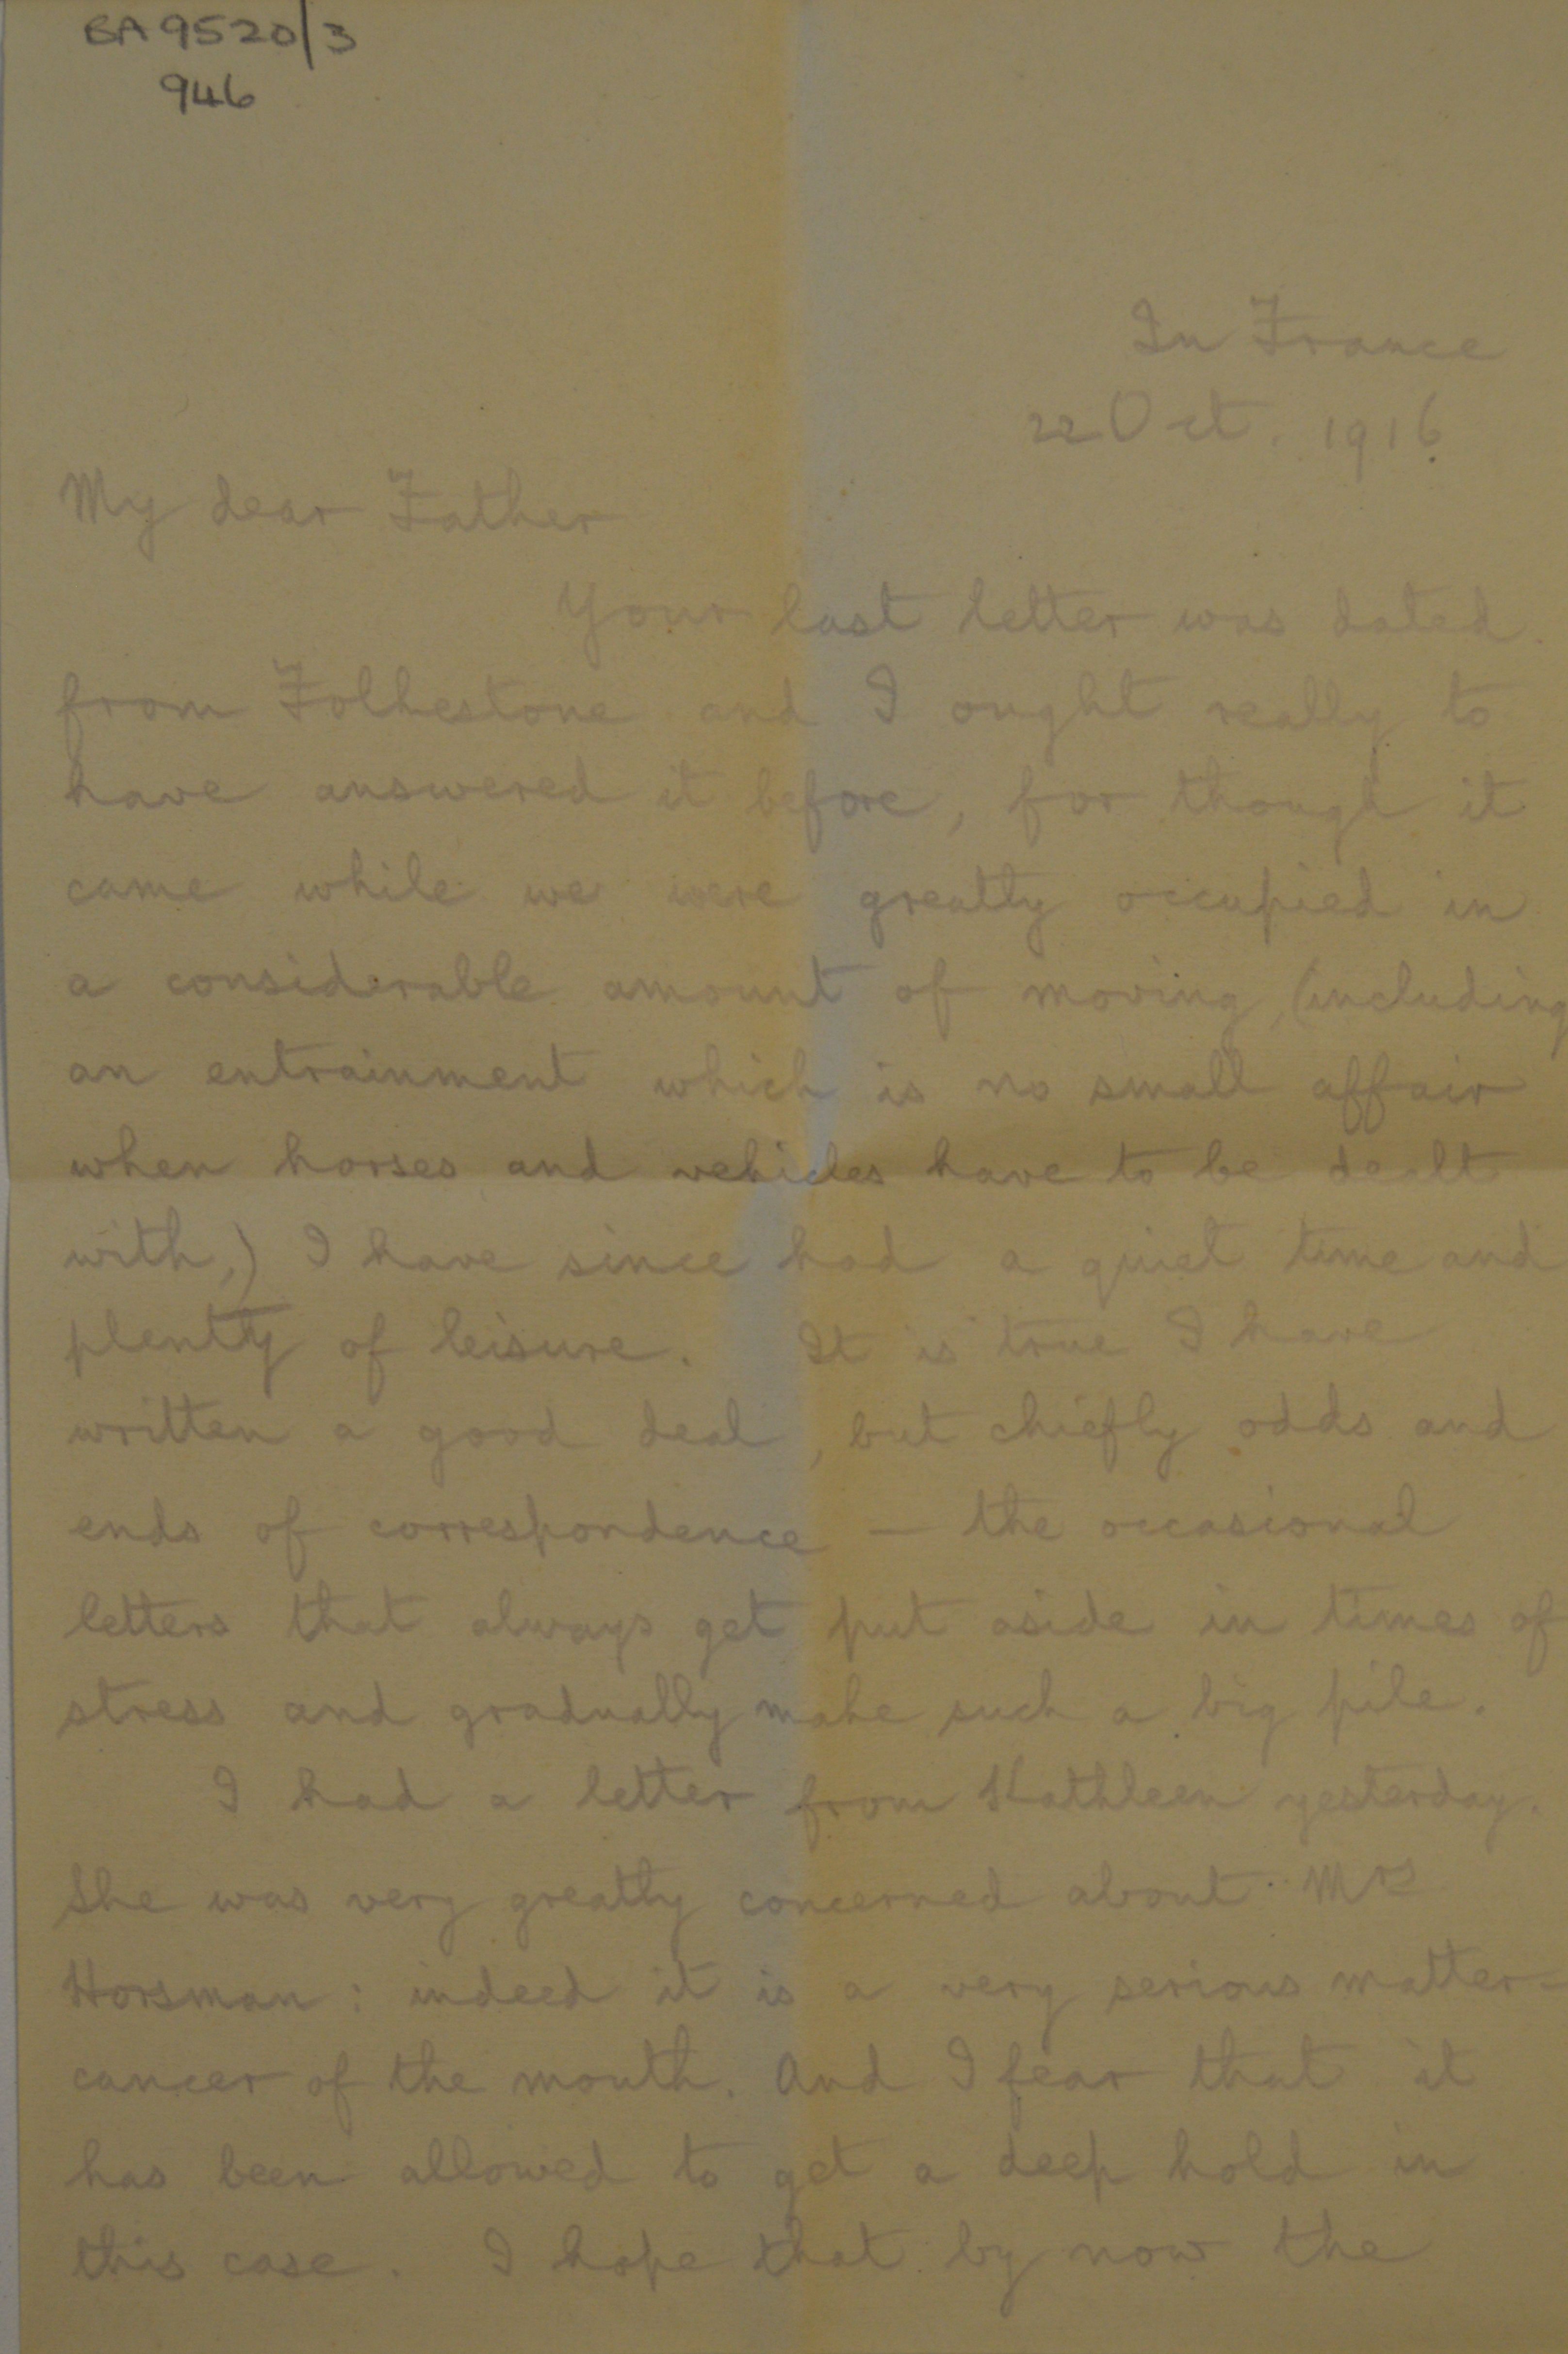 BA9520/3
946
In France
22 Oct. 1916.
My dear Father
Your last letter was dated
from Folkestone and I ought really to
have answered it before, for though it
came while we were greatly occupied in
a considerable amount of moving, (including
an entrainment which is no small affair
when horses and vehicles have to be dealt
with,) I have since had a quiet time and
plenty of leisure. It is true I have
written a good deal, but chiefly odds and
ends of correspondence — the occasional
letters that always get put aside in times of
stress and gradually make such a big pile.
I had a letter from Kathleen yesterday.
She was very greatly concerned about Mrs
Horsman: indeed it is a very serious matter —
cancer of the mouth. And I fear that it
has been allowed to get a deep hold in
this case. I hope that by now the